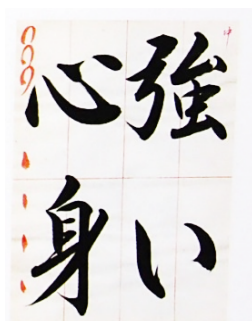 強い
心身